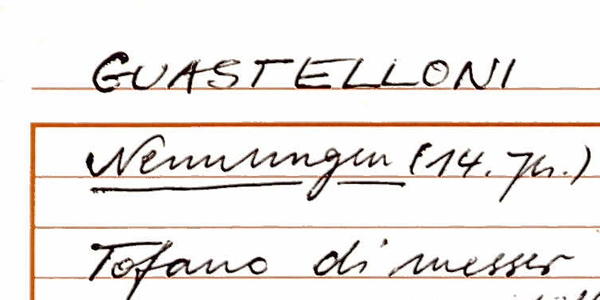 GUASTELLONI
Nennungen (14. Jh.)
Tofano di messer